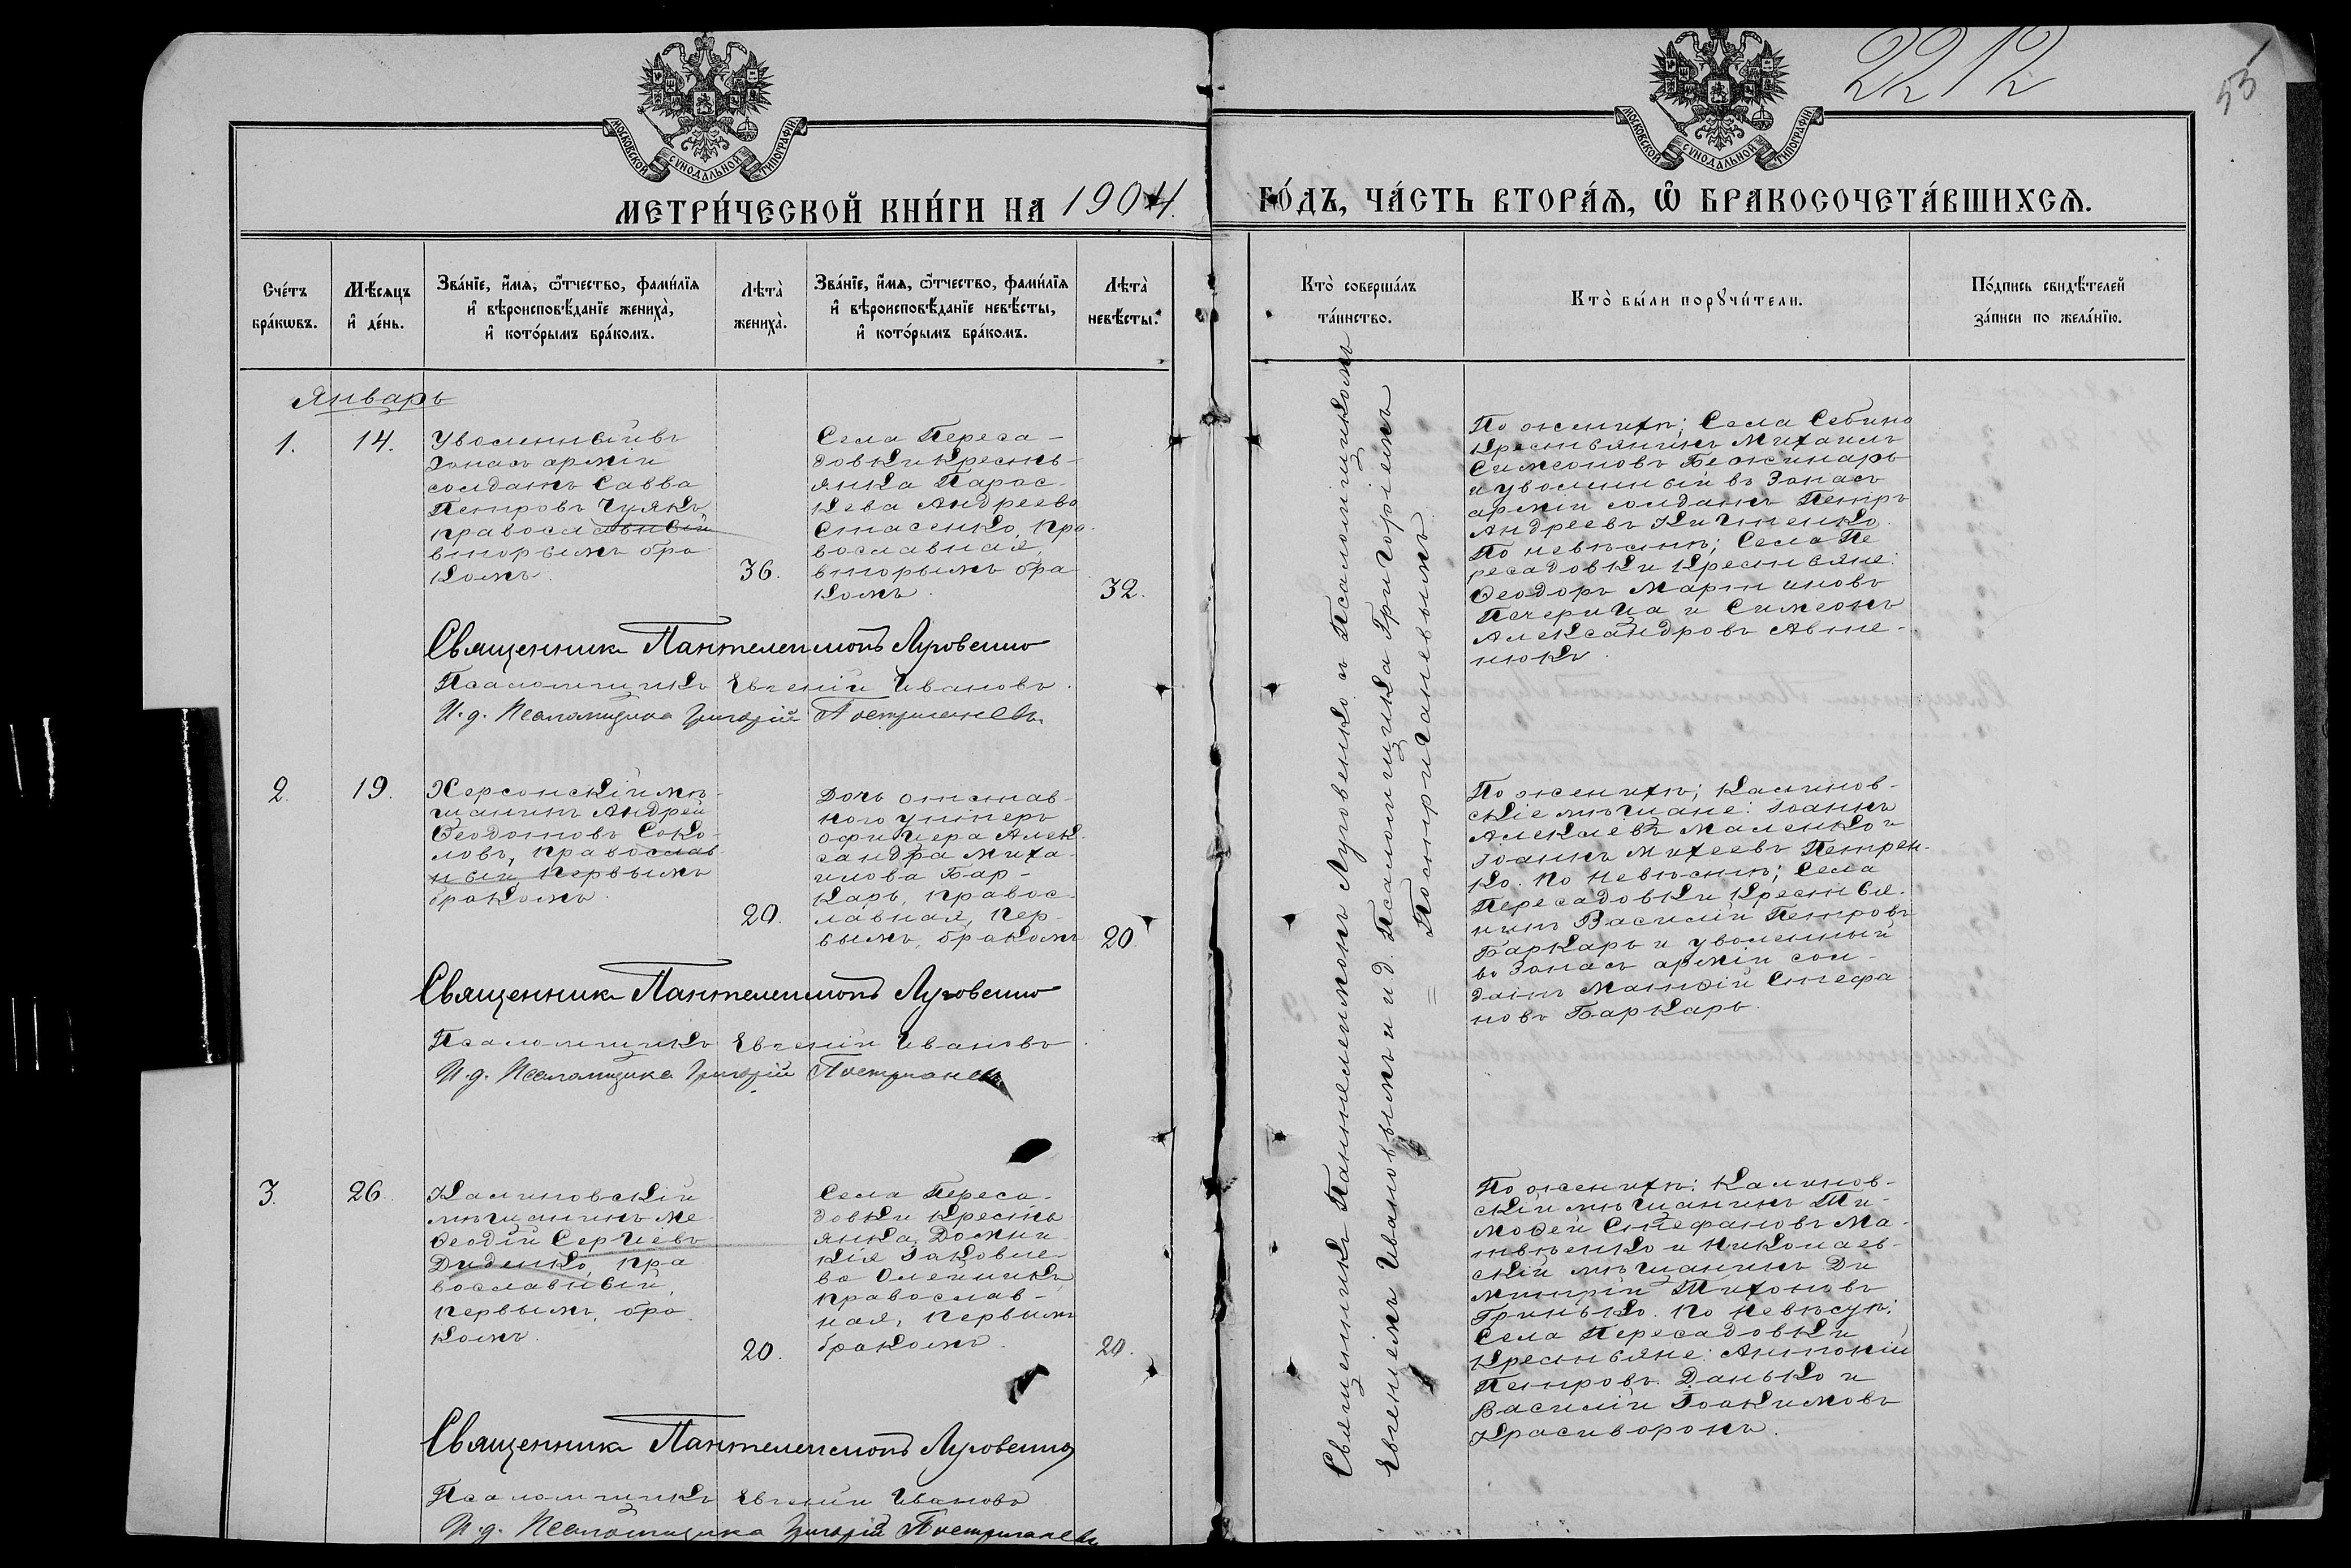 2212
53
МОСКОВСКОЙ СѴНОДАЛЬНОЙ ТИПОГРАФІИ
МОСКОВСКОЙ СѴНОДАЛЬНОЙ ТИПОГРАФІИ
МЕТРИ́ЧЕСКОЙ КНИ́ГИ НА 1904.
ГО́ДЪ, ЧА́СТЬ ВТОРА́Ѧ, Ѽ БРАКОСОЧЕТА́ВШИХСѦ.
Сче́тъ бра́кѡвъ.
Мѣ́сяцъ и҆ де́нь.
Зва́нїе, и҆́мѧ, ѻ҆́тчество, фами́лїѧ
и҆ вѣроисповѣ́данїе жениха̀,
и҆ кото́рымъ бра́комъ.
Лѣта̀ жениха̀.
Зва́нїе, и҆́мѧ, ѻ҆́тчество, фами́лїѧ
и҆ вѣроисповѣ́данїе невѣ́сты,
и҆ кото́рымъ бра́комъ.
Лѣта̀ невѣ́сты.
Кто̀ соверша́лъ
та́инство.
Кто̀ бы́ли порꙋчи́тели.
По́дпись свидѣ́телей
за́писи по жела́нїю.
Январь
1.
14.
Уволенный въ
Запасъ арміи
солдатъ Савва
Петровъ Чуякъ,
православный
вторымъ бра
комъ.
36.
Села Переса-
довки кресть-
янка Парас-
кева Андреева
Стасенко, пра
вославная,
вторымъ бра
комъ.
32.
По женихѣ; Села Себино
Крестьянинъ Михаилъ
Симеоновъ Бежинарь
и уволенный въ Запасъ
арміи солдатъ Петръ
Андреевъ Кигиненко.
По невѣстѣ; Села Пе
ресадовки Крестьяне:
Ѳеодоръ Мартиновъ
Печерица и Симеонъ
Александровъ Авне-
нюкъ.
Священникъ Пантелеимонъ Луговенко
Псаломщикъ Евгеній Ивановъ.
И. д. Псаломщика Григорій Постригачевъ
2.
19.
Херсонскій мѣ-
щанинъ Андрей
Ѳеодотовъ Соко-
ловъ, православ
ный первымъ
бракомъ.
20.
Дочь отстав-
ного унтеръ
офицера Алек-
сандра Миха-
илова Бар-
карь, правос-
лавная, пер-
вымъ, бракомъ
20.
По женихѣ; Калинов-
скіе мѣщане: Іоаннъ
Алексіевъ Маленко и
Іоаннъ Михеевъ Петрен-
ко. По невѣстѣ; Села
Пересадовки Крестья-
нинъ Василій Петровъ
Баркарь и уволенный
въ Запасъ арміи сол-
датъ Матѳій Стефа
новъ Баркарь.
Священникъ Пантелеимонъ Луговенко
Псаломщикъ Евгеній Ивановъ
И. д. Псаломщика Григорій Постригачевъ
3.
26.
Калиновскій
мѣщанинъ Ме
ѳеодій Сергіевъ
Диденко, пра
вославный,
первымъ, бра
комъ.
20.
Села Переса-
довки кресть
янка, Домни
кія Іаковле-
ва Олейникъ,
православ-
ная, первымъ
бракомъ.
20.
По женихѣ: Калинов-
скій мѣщанинъ Ти-
моѳей Стефановъ Ма-
твѣенко и Николаев-
скій мѣщанинъ Ди
митрій Тихоновъ
Гринько. По невѣстѣ:
Села Пересадовки
Крестьяне: Антоній
Петровъ Данько и
Василій Іоакимовъ
Красиворонъ.
Священникъ Пантелеимонъ Луговенко
Псаломщикъ Евгеній Ивановъ
И. д. Псаломщика Григорій Постригачевъ
Священникъ Пантелеимонъ Луговенко и Псаломщикомъ
Евгеніемъ Ивановымъ и и. д. Псаломщика Григоріемъ
= Постригачевымъ